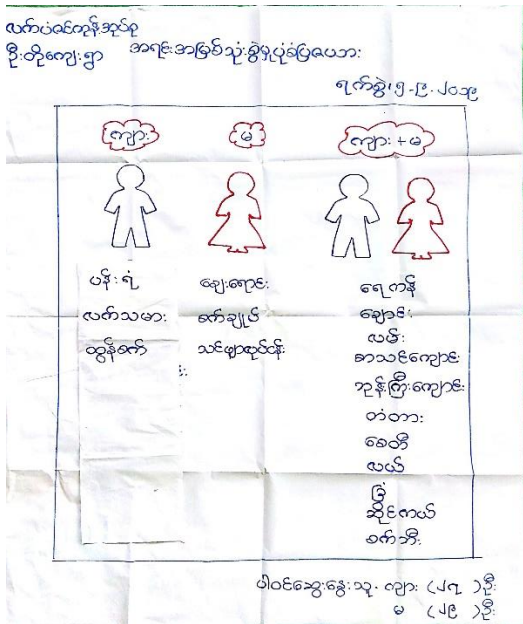 လက်ပံဇင်ကုန်းအုပ်စု
ဦးတိုကျေးရွာ အရင်းအမြစ်သုံးစွဲမှုပုံစံပြဇယား
ရက်စွဲ၊ ၅.၉.၂၀၁၉
ကျား မ ကျား+မ
ပန်းရံ ဈေးရောင်း ရေကန်
လက်သမား စက်ချုပ် ချောင်း
ထွန်စက် သင်ဖျာလုပ်ငန်း လမ်း
စာသင်ကျောင်း
ဘုန်းကြီးကျောင်း
တံတား
စေတီ
လယ်
ခြံ
ဆိုင်ကယ်
စက်ဘီး
ပါဝင်ဆွေးနွေးသူ. ကျား (၂၇) ဦး
မ (၂၉) ဦး